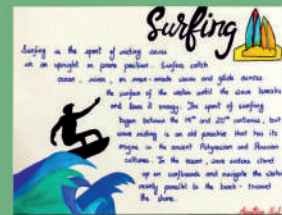 Surfing
Surfing is the sport of riding waves
in an upright or prone position. Surfers catch
ocean, river, or man-made waves and glide across
the surface of the water until the wave breaks
and loses it energy. The sport of surfing
began between the 19th and 20th centuries, but
wave riding is an old practice that has its
origins in the ancient Polynesian and Peruvian
cultures. In the ocean, wave riders stand
up on surfboards and navigate the water
nearly parallel to the beach -
the shore.